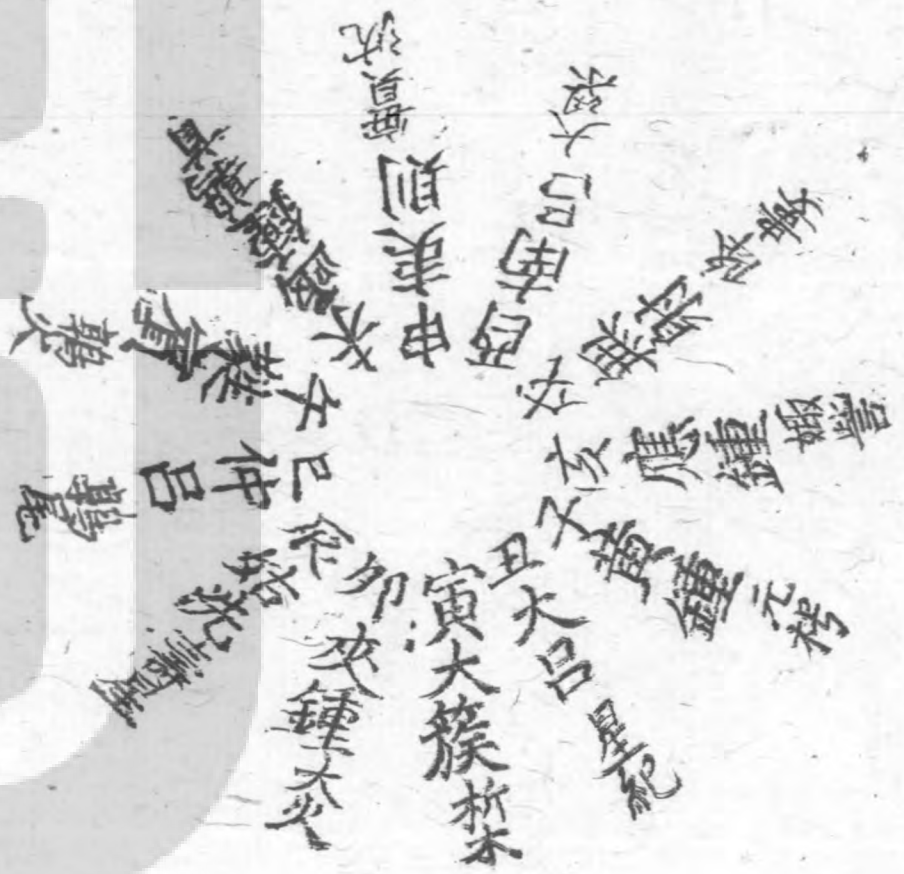 子黃鍾元枵
丑大呂星紀
寅大簇析木
卯夾鍾大火
辰姑洗壽星
巳仲呂鶉尾
午蕤賓鶉火
未函鍾鶉首
申夷則實沈
酉南呂大梁
戌無射降婁
亥應鍾娵訾